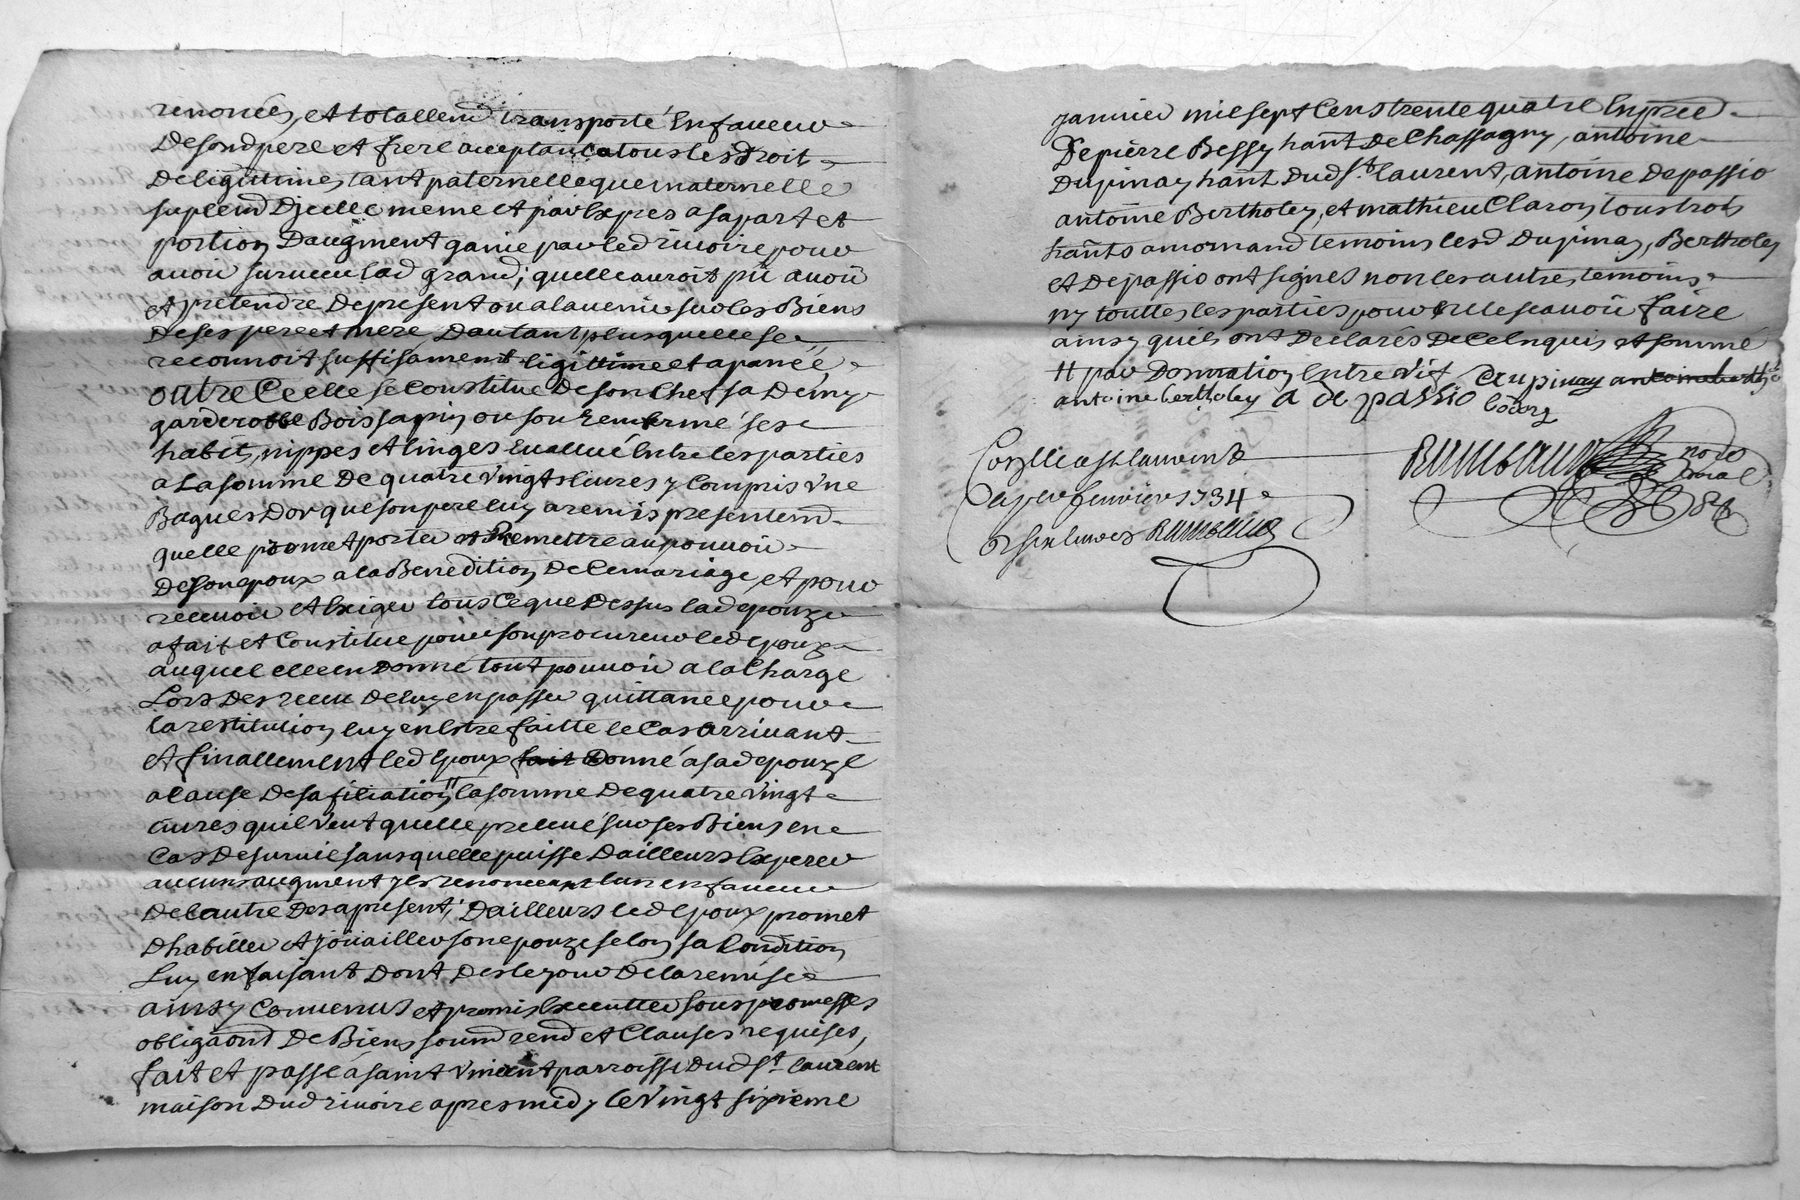 renoncés, et totallemd transporté en faveur
de sond pere et frere acceptant tous les droit
de legittime, tant paternelle que maternelle
suplemd d'jcelle meme et par expres a sa part et
portion daugment ganié par led rivoire pour
avoir survecu lad grand; quelle auroit pû avoir
et pretendre de present ou a lavenir sur les Biens
de ses pere et mere, dautant plus quelle se
reconnoit suffisament legittimé et apanée
outre Ce elle se Constitue de son Chef sa demy
garderobbe Bois sapin ou sont renfermé ses
habits, nippes et linges Evallué Entre les parties
a la somme de quatre vingts livres y Compris une
Bagues d'or que son pere luy a remis presentemd
quelle promet porter et Remettre au pouvoir
de son epoux a la Benedition de Ce mariage, et pour
recevoir et Exiger tous Ce que dessus lad epouze
a fait et Constitue pour son procureur led epoux
auquel elle en donne tout pouvoir a la Charge
Lors des receu de luy en passer quittance pour
la restitution luy en Estre faitte le Cas arrivant
et finallement led Epoux fait donne á sad epouze
a Cause de sa filiation" la somme de quatre vingt
livres quil veut quelle preleve sur ses Biens en
Cas de survie sans quelle puisse dailleurs Esperer
aucuns augment y les renonceant lun en faveur
de l'autre des a present; dailleurs led Epoux promet
dhabiller et joüailler son epouze selon sa Condition
Luy en faisant dont des le jour de la remise
ainsy Convenus et promis Executter sous promesses
obligaōnd de Biens soumd rend et Clauses requises,
fait et passé á saint vincent parroisse dud St. laurent
maison dud rivoire apres midy le vingt sixieme
janvier mil sept Cens trente quatre En prced
De pierre Bessy hant de Chassagny, antoine
Dupinay hant dud St. laurent, antoine depassio
antoine Bertholey, et mathieu Claron tous trois
hants a mornand temoins lesd Dupinay, Bertholey
et depassio ont signés non les autres temoins
ny touttes les parties pour ne le scavoir faire
ainsy quils ont declarés de Ce Enquis et sommé
" par donnation Entre vif Dupinay
antoine bertholey a de passio
Conllé a st laurent
le janvier 1734
Rambaud
Rambaud no re
roial